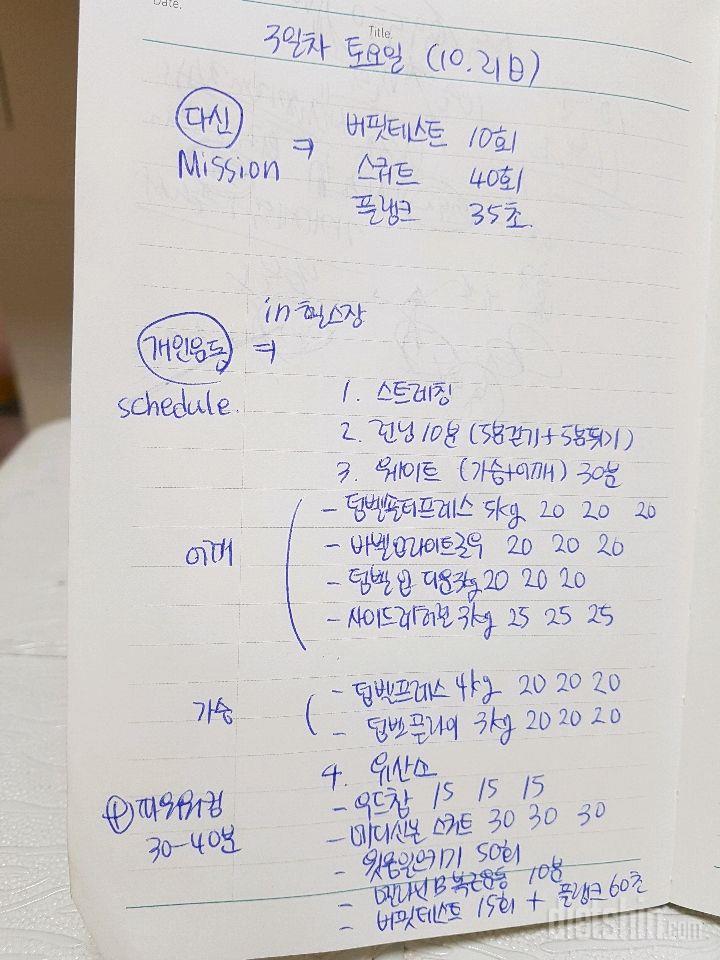 Date.
Title.
3일차 토요일 (10.21日)
다신 Mission ⇒ 버핏테스트 10회
스쿼트 40회
플랭크 35초.
in 헬스장
개인운동 schedule. ⇒
1. 스트레칭
2. 런닝 10분 (5분걷기+5분뛰기)
3. 웨이트 (가슴+어깨) 30분
어깨
- 덤벨숄더프레스 5kg 20 20 20
- 바벨업라이트로우 20 20 20
- 덤벨 업 다운 3kg 20 20 20
- 사이드레터럴 3kg 25 25 25
가슴
- 덤벨프레스 4kg 20 20 20
- 덤벨플라이 3kg 20 20 20
4. 유산소
⊕ 파워워킹
30-40분
- 우드찹 15 15 15
- 메디신볼 스쿼트 30 30 30
- 윗몸일으키기 50회
- 복근운동 10분
- 버핏테스트 15회 + 플랭크 60초
dietshin.com